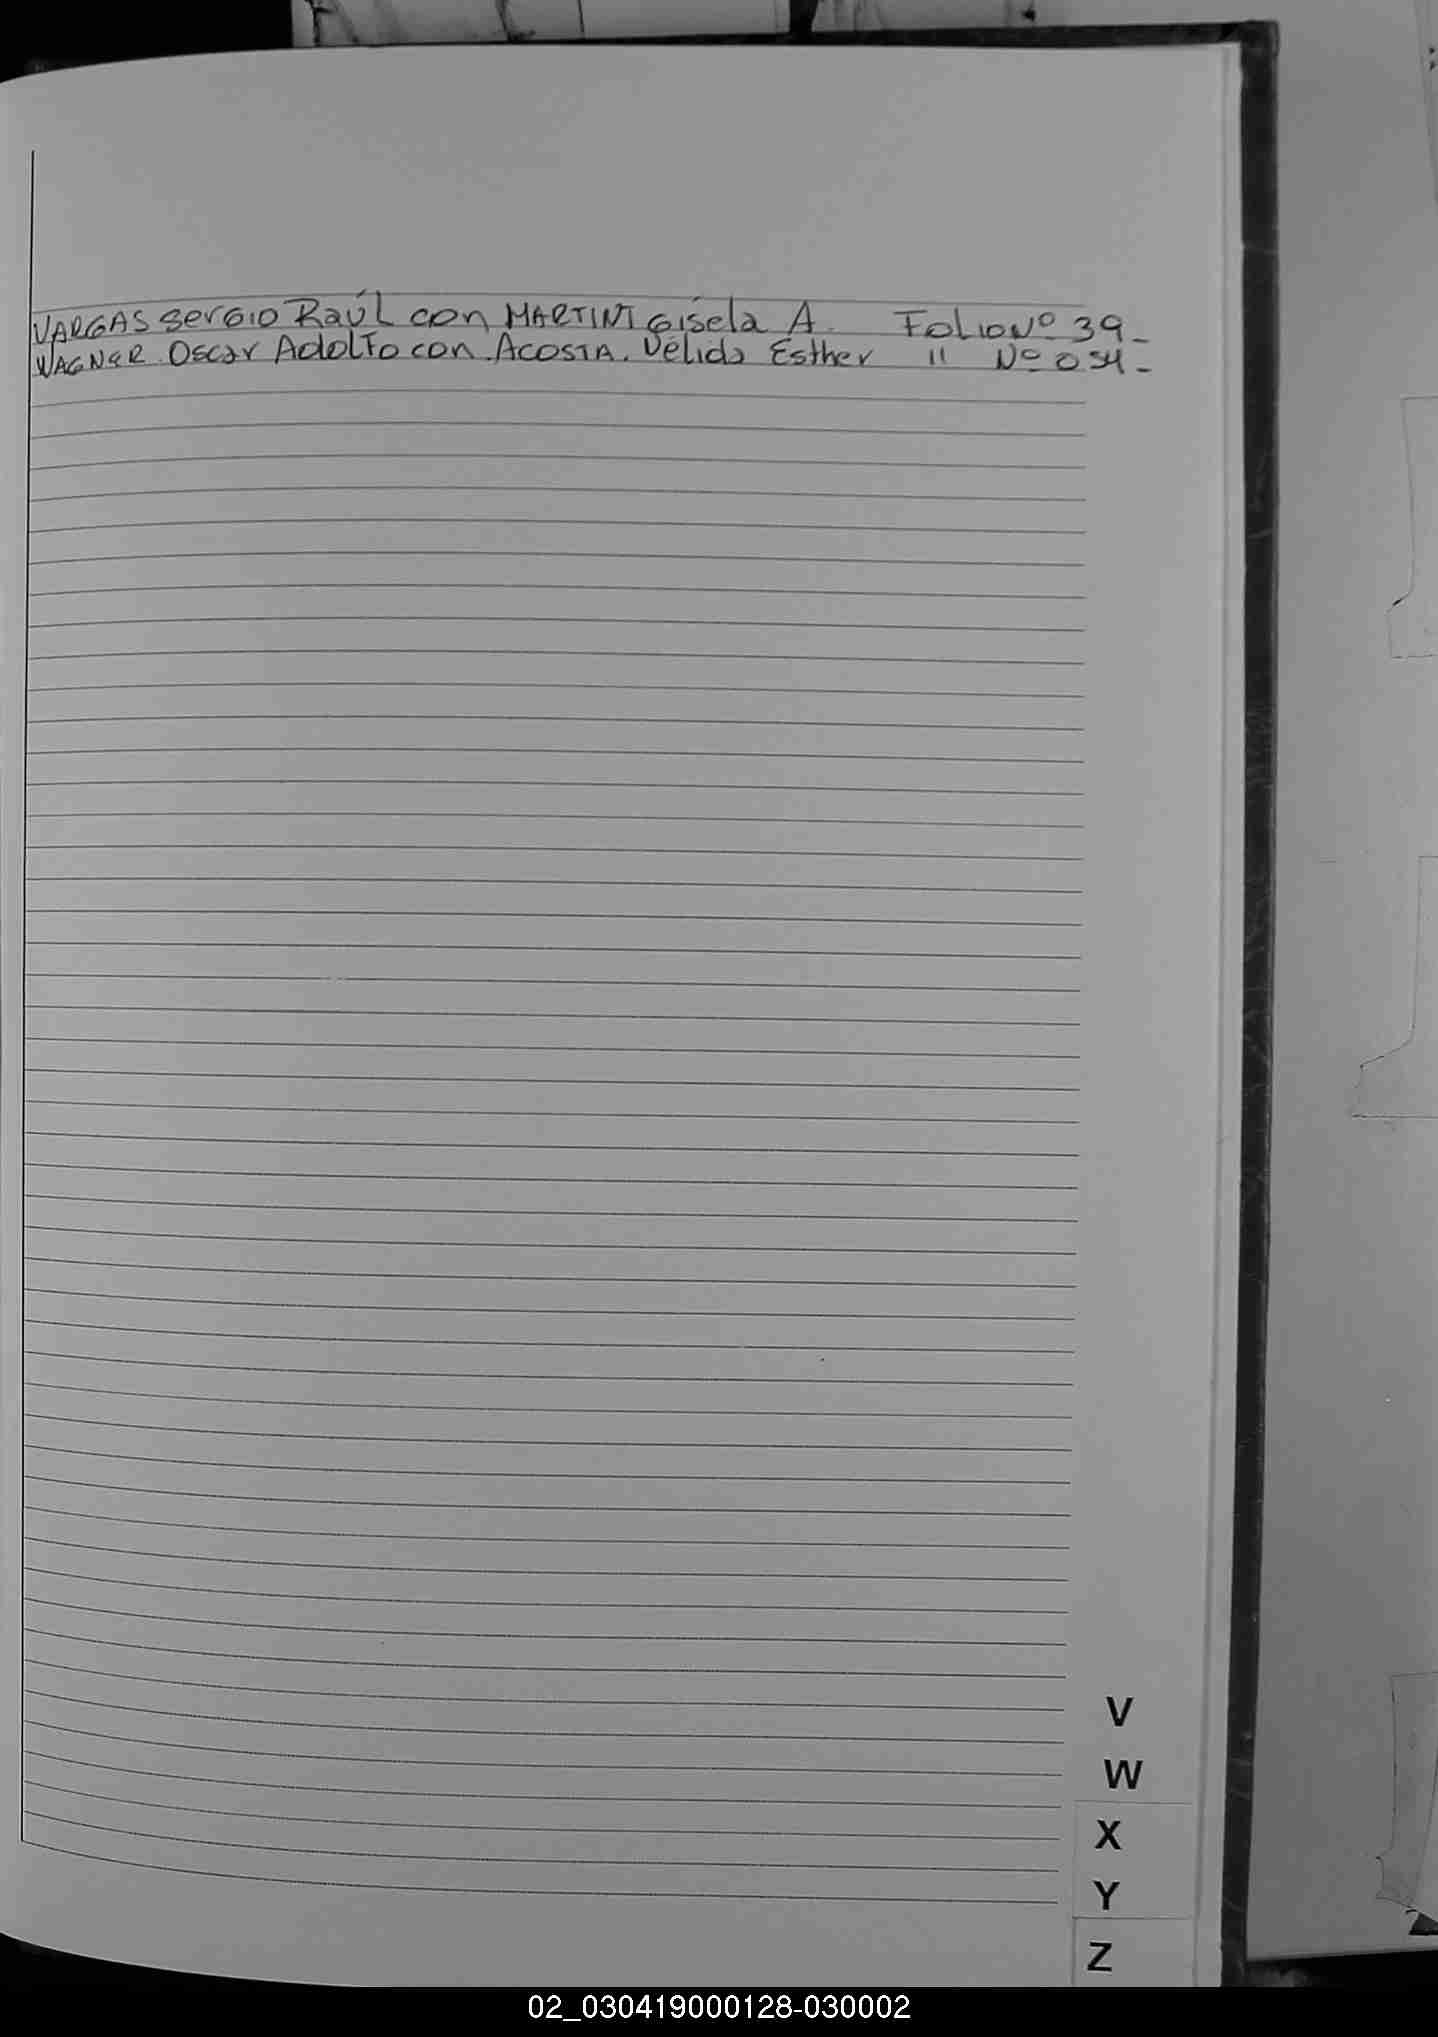 VARGAS Sergio Raúl con MARTINI Gisela A. Folio Nº 39-
WAGNER Oscar Adolfo con ACOSTA. Vélida Esther " Nº 054-
V
W
X
Y
Z
02_030419000128-030002